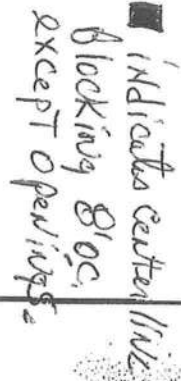 indicates center line
blocking 8' O.C.
except openings.